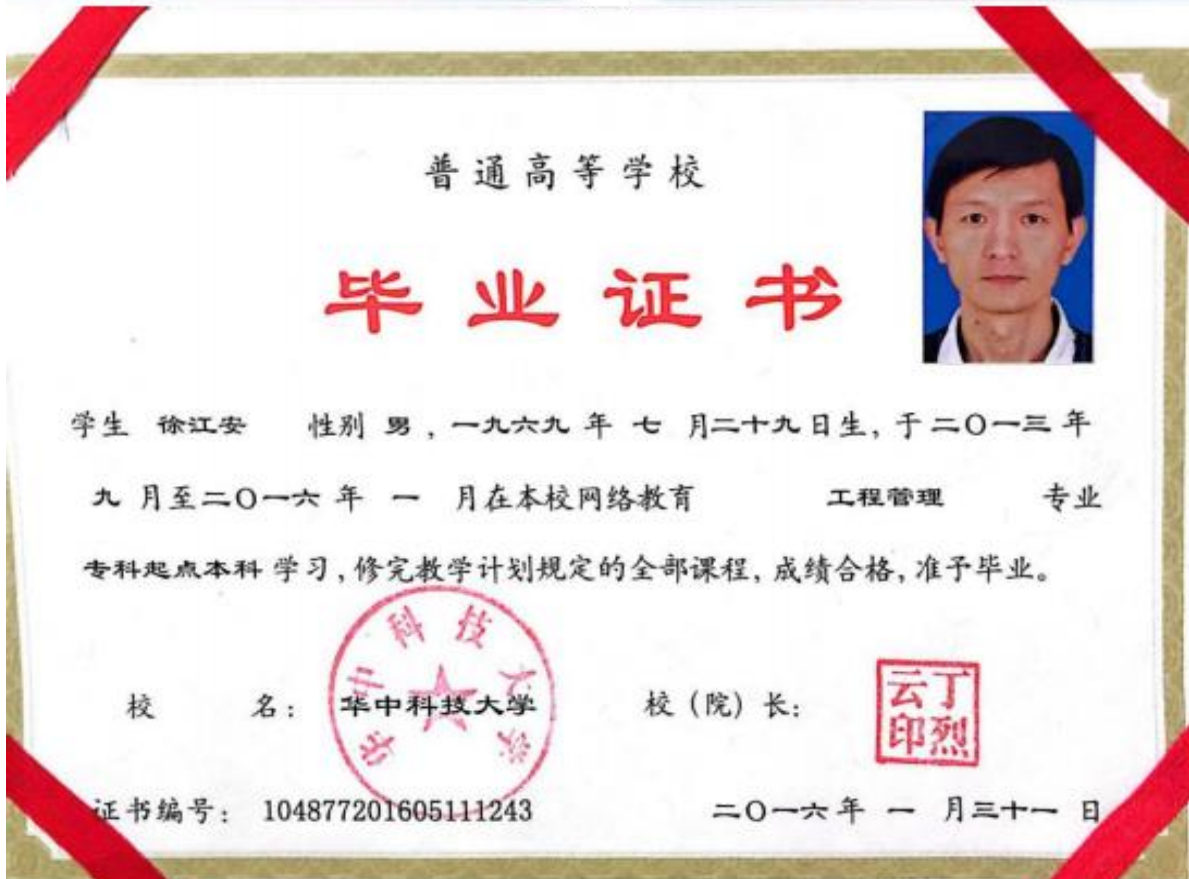 普通高等学校
毕业证书
学生 徐江安 性别 男，一九六九 年 七 月二十九日生，于二〇一三 年
九 月至二〇一六 年 一 月在本校网络教育 工程管理 专业
专科起点本科 学习，修完教学计划规定的全部课程，成绩合格，准予毕业。
华中科技大学
校 名： 华中科技大学 校（院）长： 丁烈云印
证书编号： 104877201605111243 二〇一六 年 一 月三十一 日